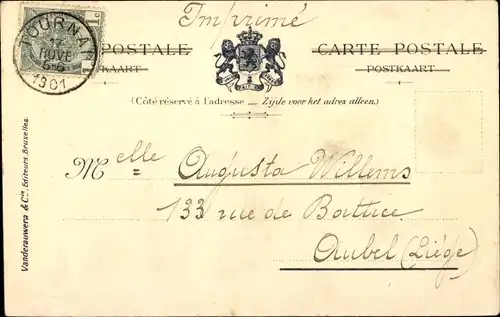 Imprimé
TOURNAI
NOVE
5-6
1901
POSTALE
POSTKAART
CARTE POSTALE
POSTKAART
(Côté réservé à l'adresse — Zijde voor het adres alleen.)
Melle Augusta Willems
133 rue de Battice
Aubel (Liége)
Vanderauwera & Cie, Editeurs, Bruxelles.